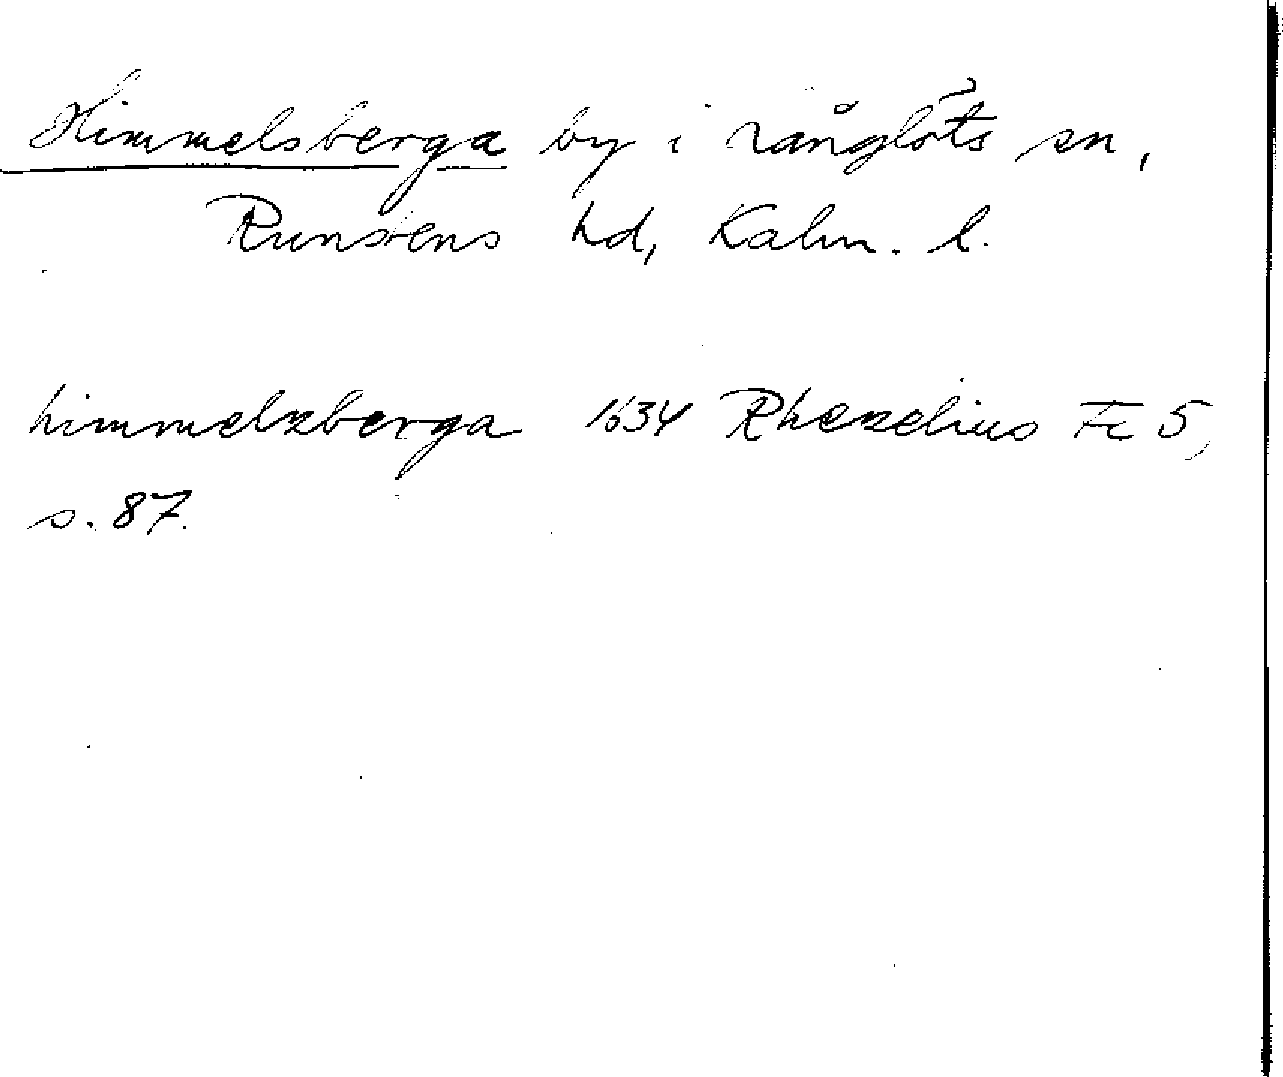 Himmelsberga by i Långlöts sn,
Runstens hd, Kalm. l.
himmelzberga 1634 Rhezelius Fc 5,
s. 87.